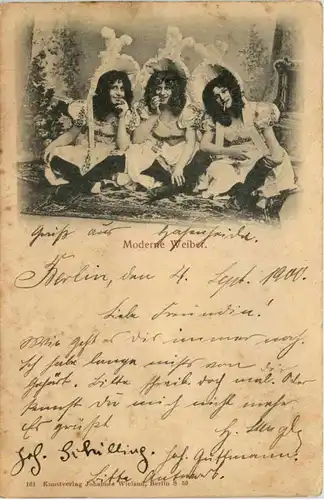 Gruß aus Hasenheide.
Moderne Weiber.
Berlin, den 4. Sept. 1900.
Liebe Freundin!
Wie geht es dir immer noch.
Ich habe lange nichts von Dir
Gehört. Bitte schreib doch mal. Oder
kennst du mich nicht mehr
Es grüßt
Joh. Schilling. Joh. Guttmann.
Bitte Antwort.
161 Kunstverlag Johannes Wieland, Berlin S 53